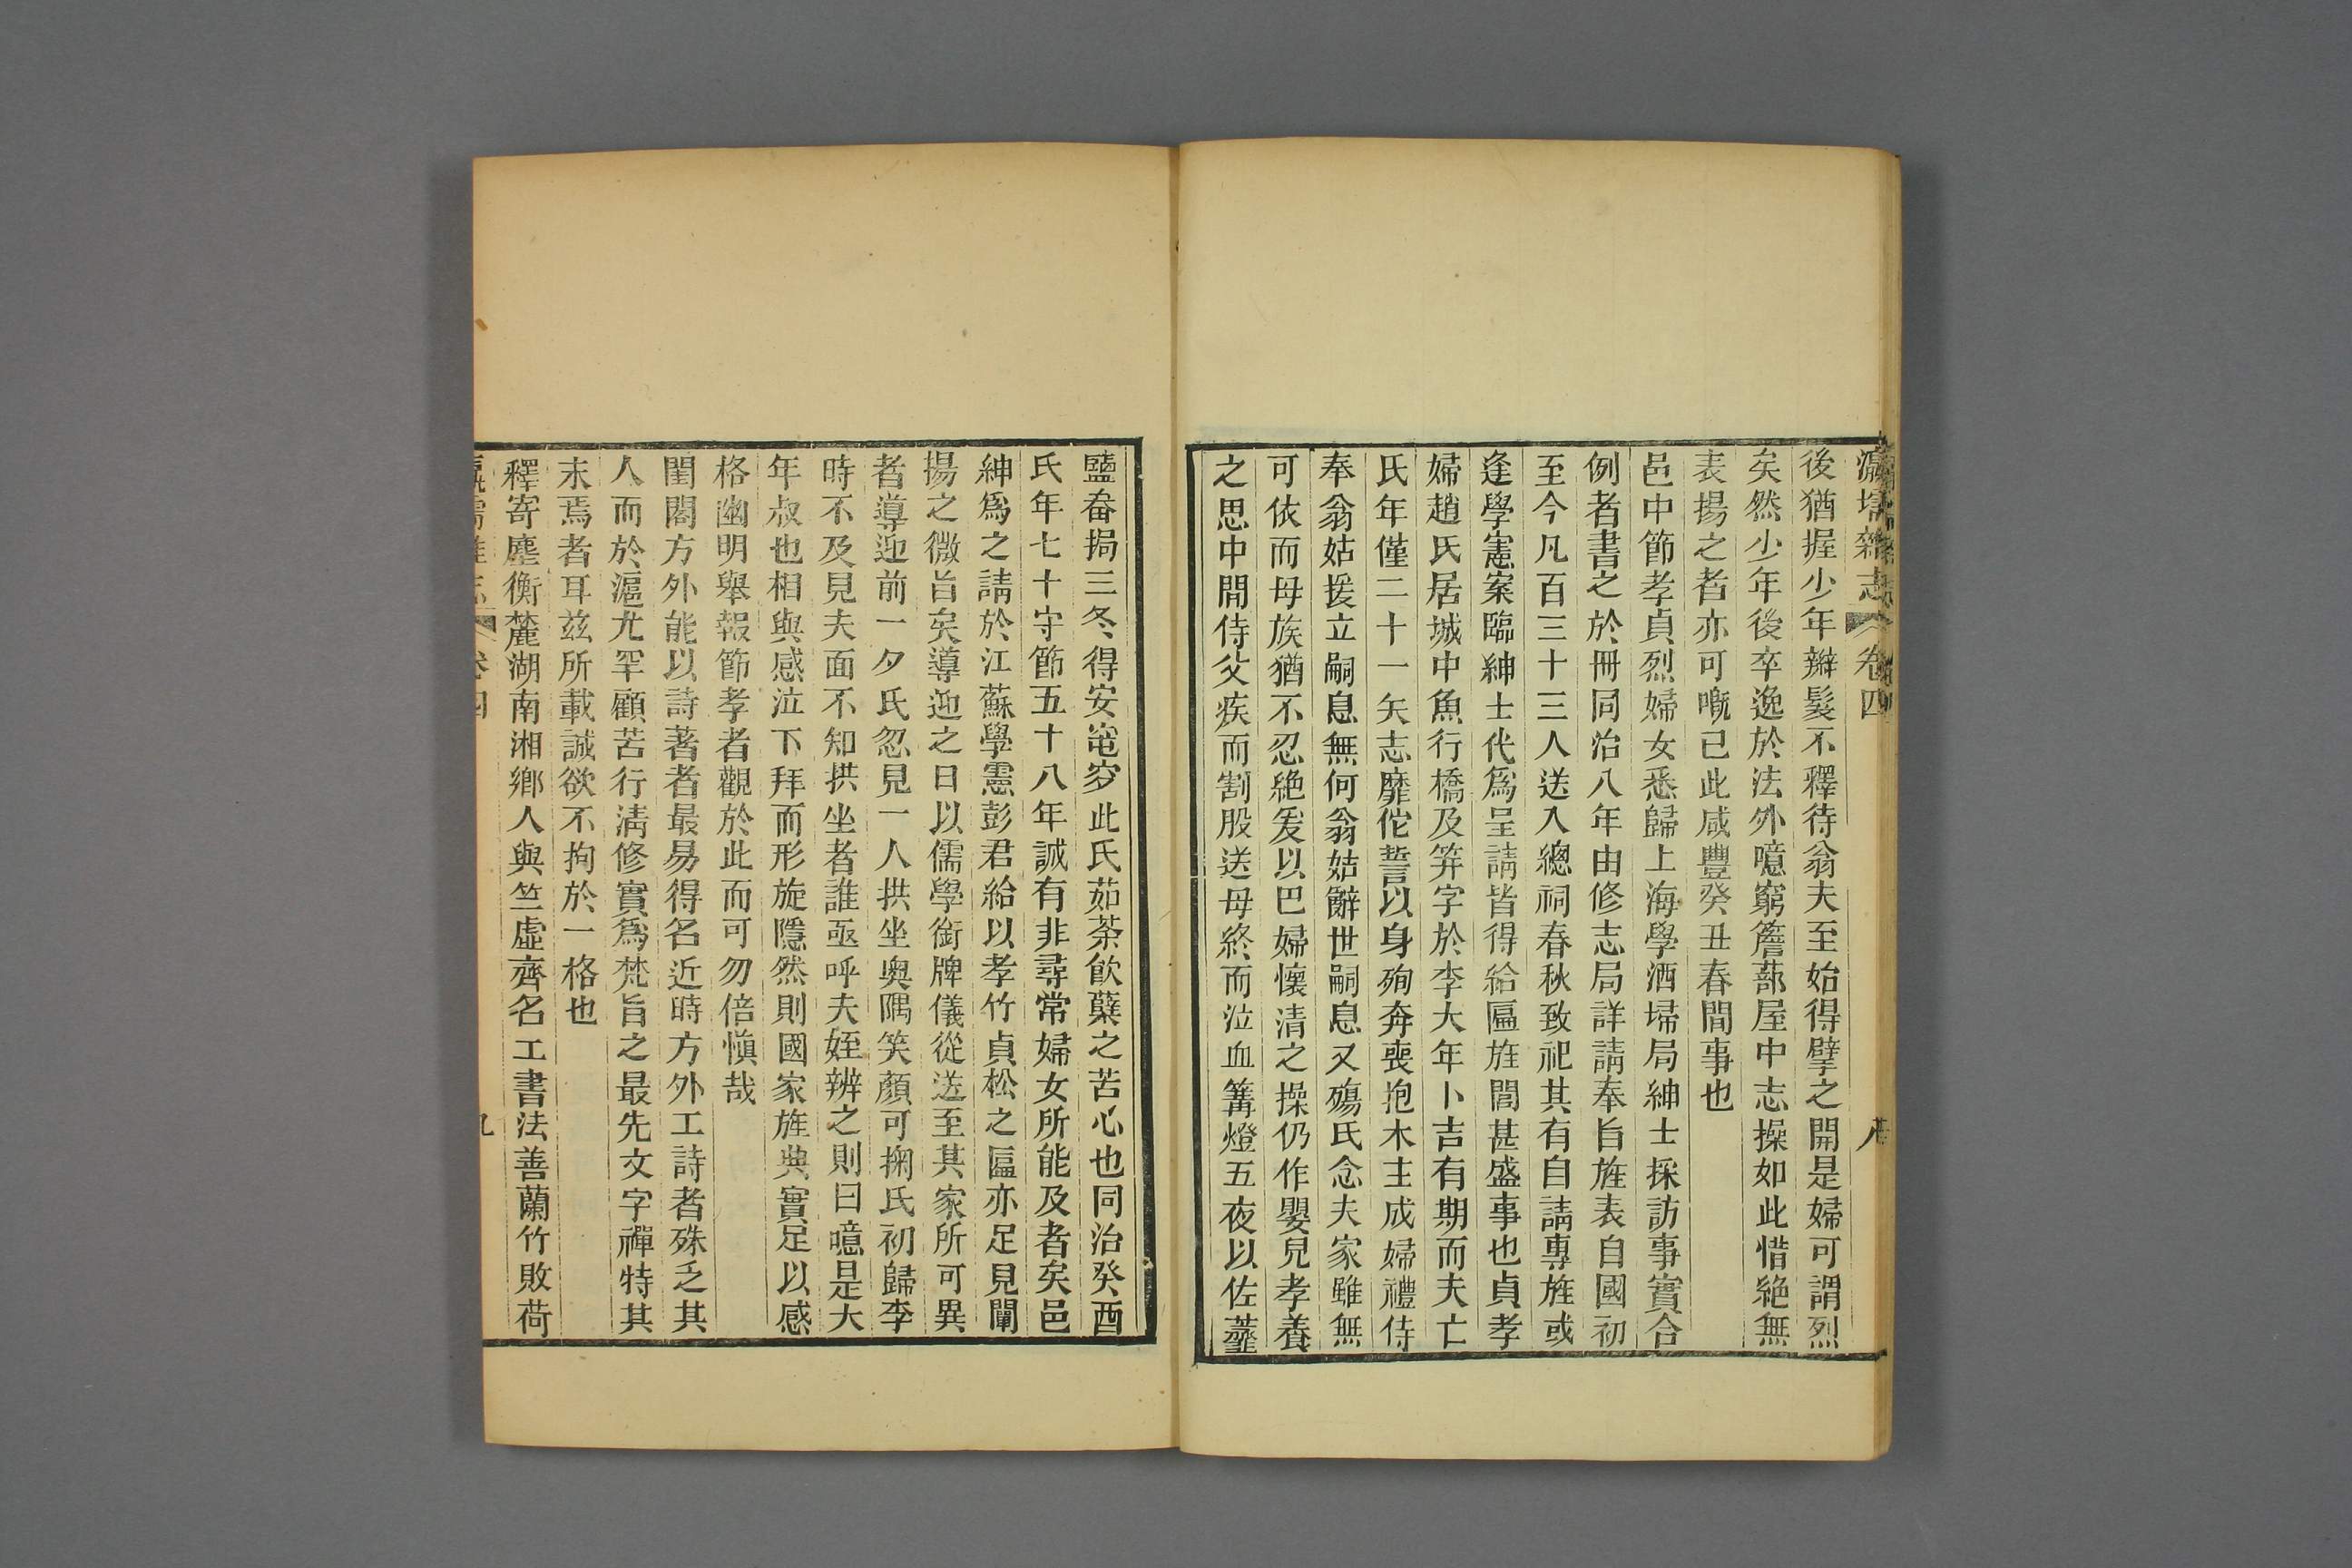 瀛壖雜志 卷四 八
後猶握少年辮髮不釋待翁夫至始得擘之開是婦可謂烈
矣然少年後卒逸於法外噫窮簷蔀屋中志操如此惜絶無
表揚之者亦可嘅已此咸豐癸丑春間事也
邑中節孝貞烈婦女悉歸上海學洒埽局紳士採訪事實合
例者書之於冊同治八年由修志局詳請奉旨旌表自國初
至今凡百三十三人送入總祠春秋致祀其有自請專旌或
逢學憲案臨紳士代爲呈請皆得給匾旌閭甚盛事也貞孝
婦趙氏居城中魚行橋及笄字於李大年卜吉有期而夫亡
氏年僅二十一矢志靡佗誓以身殉奔喪抱木主成婦禮侍
奉翁姑援立嗣息無何翁姑辭世嗣息又殤氏念夫家雖無
可依而母族猶不忍絶爰以巴婦懷清之操仍作嬰兒孝養
之思中間侍父疾而割股送母終而泣血篝燈五夜以佐虀
鹽畚挶三冬得安窀穸此氏茹荼飮蘖之苦心也同治癸酉
氏年七十守節五十八年誠有非尋常婦女所能及者矣邑
紳爲之請於江蘇學憲彭君給以孝竹貞松之匾亦足見闡
揚之微旨矣導迎之日以儒學銜牌儀從送至其家所可異
者導迎前一夕氏忽見一人拱坐奧隅笑顏可掬氏初歸李
時不及見夫面不知拱坐者誰亟呼夫姪辨之則曰噫是大
年叔也相與感泣下拜而形旋隱然則國家旌典實足以感
格幽明舉報節孝者觀於此而可勿倍愼哉
閨閣方外能以詩著者最易得名近時方外工詩者殊乏其
人而於滬尤罕顧苦行淸修實爲梵旨之最先文字禪特其
末焉者耳茲所載誠欲不拘於一格也
釋寄塵衡麓湖南湘鄕人與竺虛齊名工書法善蘭竹敗荷
瀛壖雜志 卷四 九